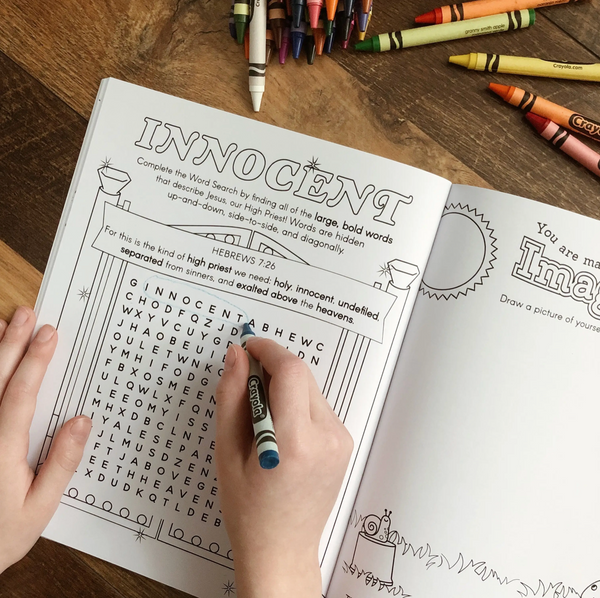 INNOCENT
Complete the Word Search by finding all of the large, bold words
that describe Jesus, our High Priest! Words are hidden
up-and-down, side-to-side, and diagonally.
HEBREWS 7:26
For this is the kind of high priest we need: holy, innocent, undefiled,
separated from sinners, and exalted above the heavens.
G I N N O C E N T A B H E W C
C H O D F Q Z J D
W X Y V C U Y G
J H A O B E U
O U L E T W N
Y M H I F O D G
F B X O S M E E N
U L Q W L X F Q N
L E E O M Y I S S
M H X D B C L N T E
Y A L E S E P A R
J L M U S D Z E N
F T J A B O V E G E
E E T H H E A V E N
X D U D K Q T L D E B
You are ma
Imag
Draw a picture of yourse
granny smith apple
Crayola.com
Crayola
Crayola